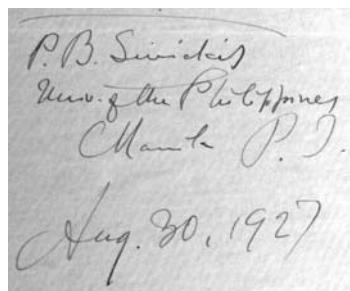 P. B. Sivickis
Univ. of the Philippines
Manila P. I.
Aug. 30, 1927